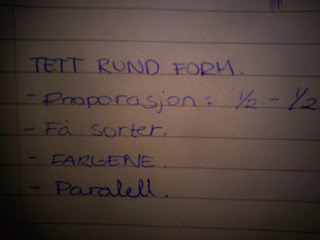 TETT RUND FORM.
- Proporasjon: 1/2 - 1/2
- Få sorter.
- FARGENE.
- Paralell.